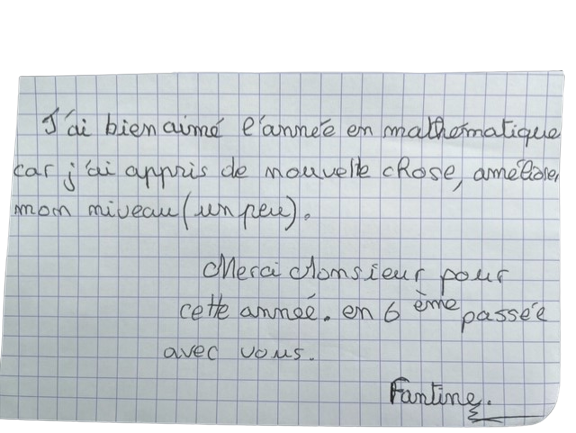 J'ai bien aimé l'année en mathématique
car j'ai appris de nouvelle chose, améliorer
mon niveau (un peu).
Merci Monsieur pour
cette année. en 6 ème passée
avec vous.
Fantine.